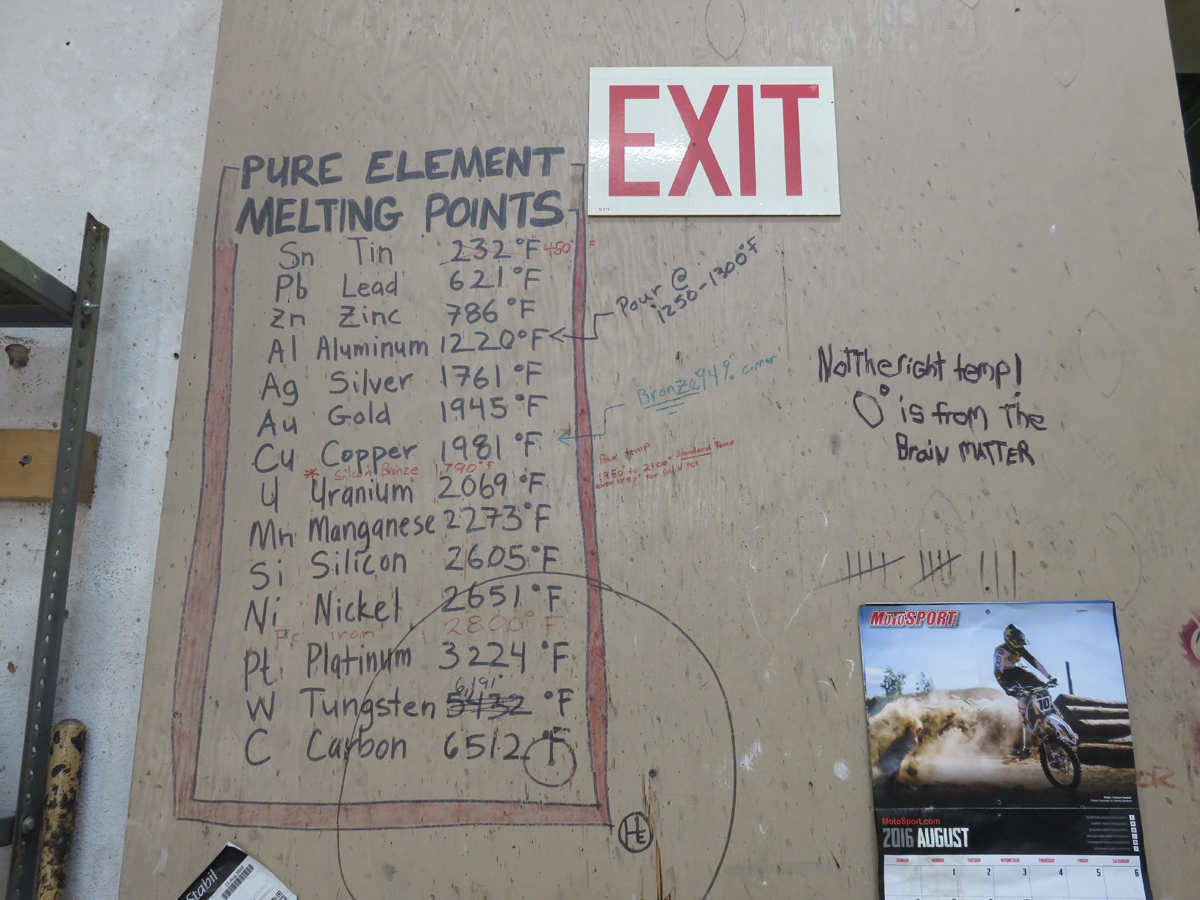 EXIT
PURE ELEMENT
MELTING POINTS
Sn Tin 232°F 450° F
Pb Lead 621°F
Zn Zinc 786°F
Al Aluminum 1220°F
Pour @
1250-1300°F
Ag Silver 1761°F
Bronze 94%
Au Gold 1945°F
Cu Copper 1981°F
* Silicon Bronze 1,790°F
Pour temp
1950° to 2100° Standard Temp
for
U Uranium 2069°F
Mn Manganese 2273°F
Si Silicon 2605°F
Ni Nickel 2651°F
Fe Iron 2800°F
Pt Platinum 3224°F
6,191
W Tungsten 5432 °F
C Carbon 6512°F
HE
Not The right temp!
0° is from The
Brain MATTER
MOTOSPORT
10
MotoSport.com
2016 AUGUST
SUNDAY MONDAY TUESDAY WEDNESDAY THURSDAY FRIDAY SATURDAY
1 2 3 4 5 6
Stabil